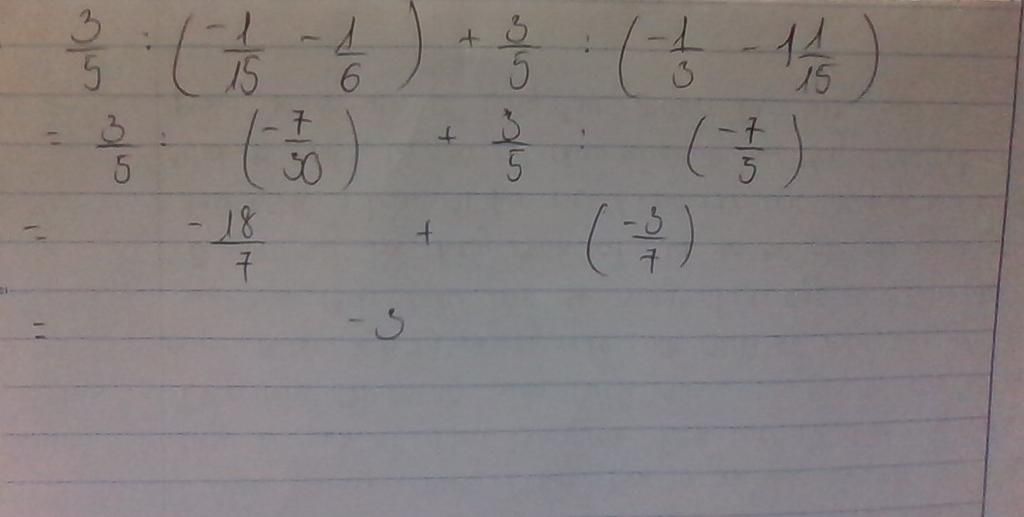 3/5 : (-1/15 - 1/6) + 3/5 : (-1/3 - 1 1/15)
= 3/5 : (-7/30) + 3/5 : (-7/5)
= -18/7 + (-3/7)
= -3